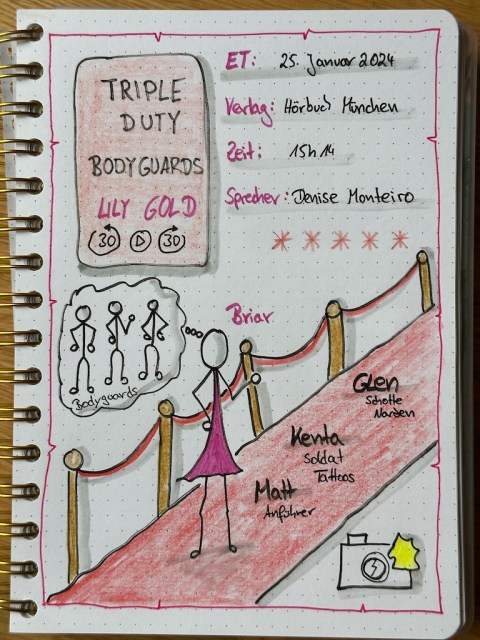 TRIPLE
DUTY
BODYGUARDS
LILY GOLD
30 30
ET: 25. Januar 2024
Verlag: Hörbuch München
Zeit: 15h 14
Sprecher: Denise Monteiro
Bodyguards
Briar
Glen
Schotte
Narben
Kenta
Soldat
Tattoos
Matt
Anführer